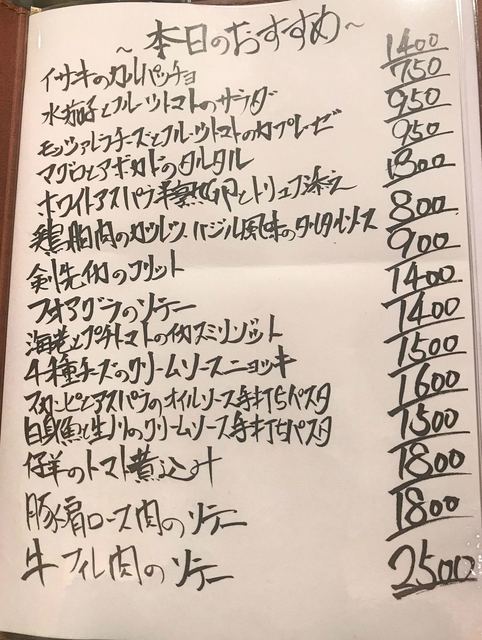 ~本日のおすすめ~
イサキのカルパッチョ 1400
水茄子とフルーツトマトのサラダ 750
モッツァレラチーズとフルーツトマトのカプレーゼ 950
マグロとアボカドのタルタル 950
ホワイトアスパラ半熟卵とトリュフ添え 1300
鶏胸肉のカツレツ バジル風味のタルタルソース 800
剣先イカのフリット 900
フォアグラのソテー 1400
海老とプチトマトのイカスミリゾット 1400
4種チーズのクリームソースニョッキ 1500
スカンピとアスパラのオイルソース手打ちパスタ 1600
白身魚と生ノリのクリームソース手打ちパスタ 1500
仔羊のトマト煮込み 1800
豚肩ロース肉のソテー 1800
牛フィレ肉のソテー 2500